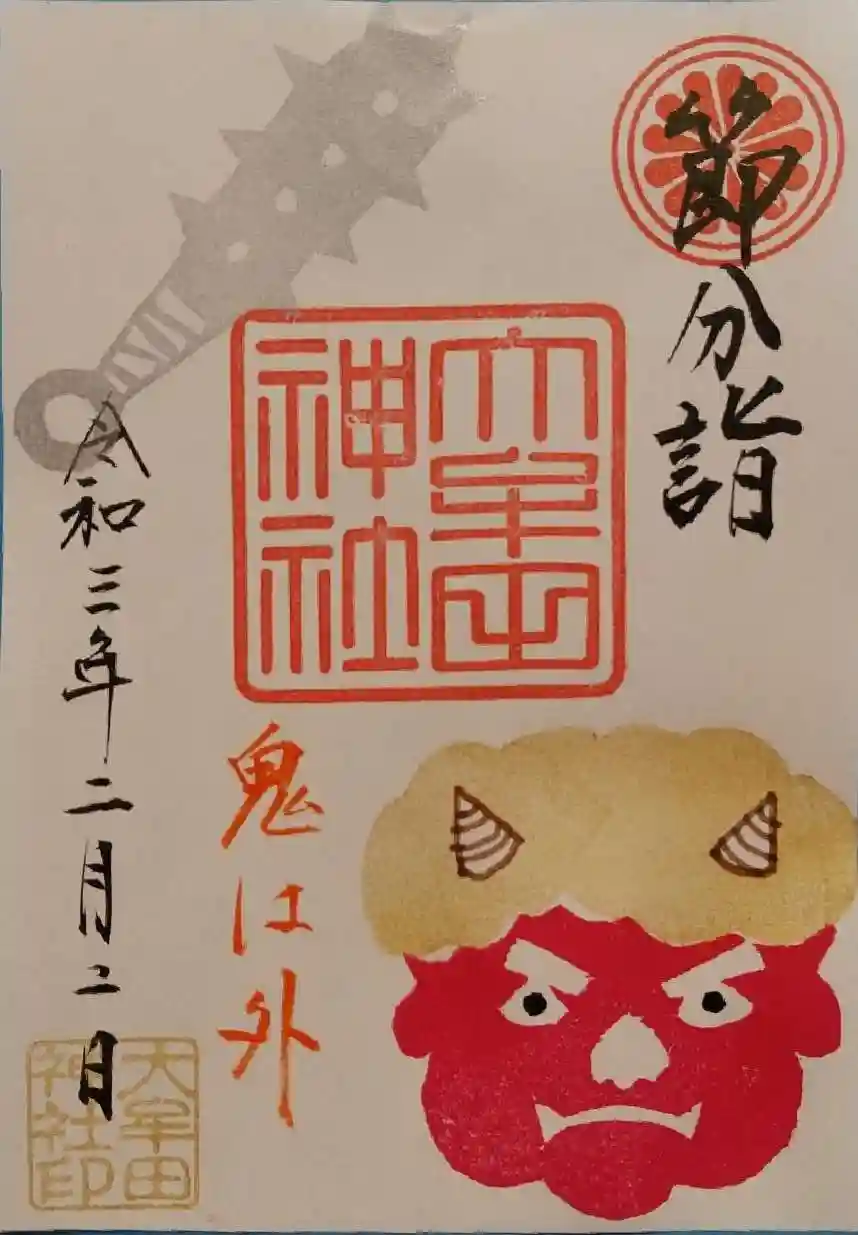 節分詣
大牟田
神社
鬼は外
令和三年二月二日
大牟田
神社印